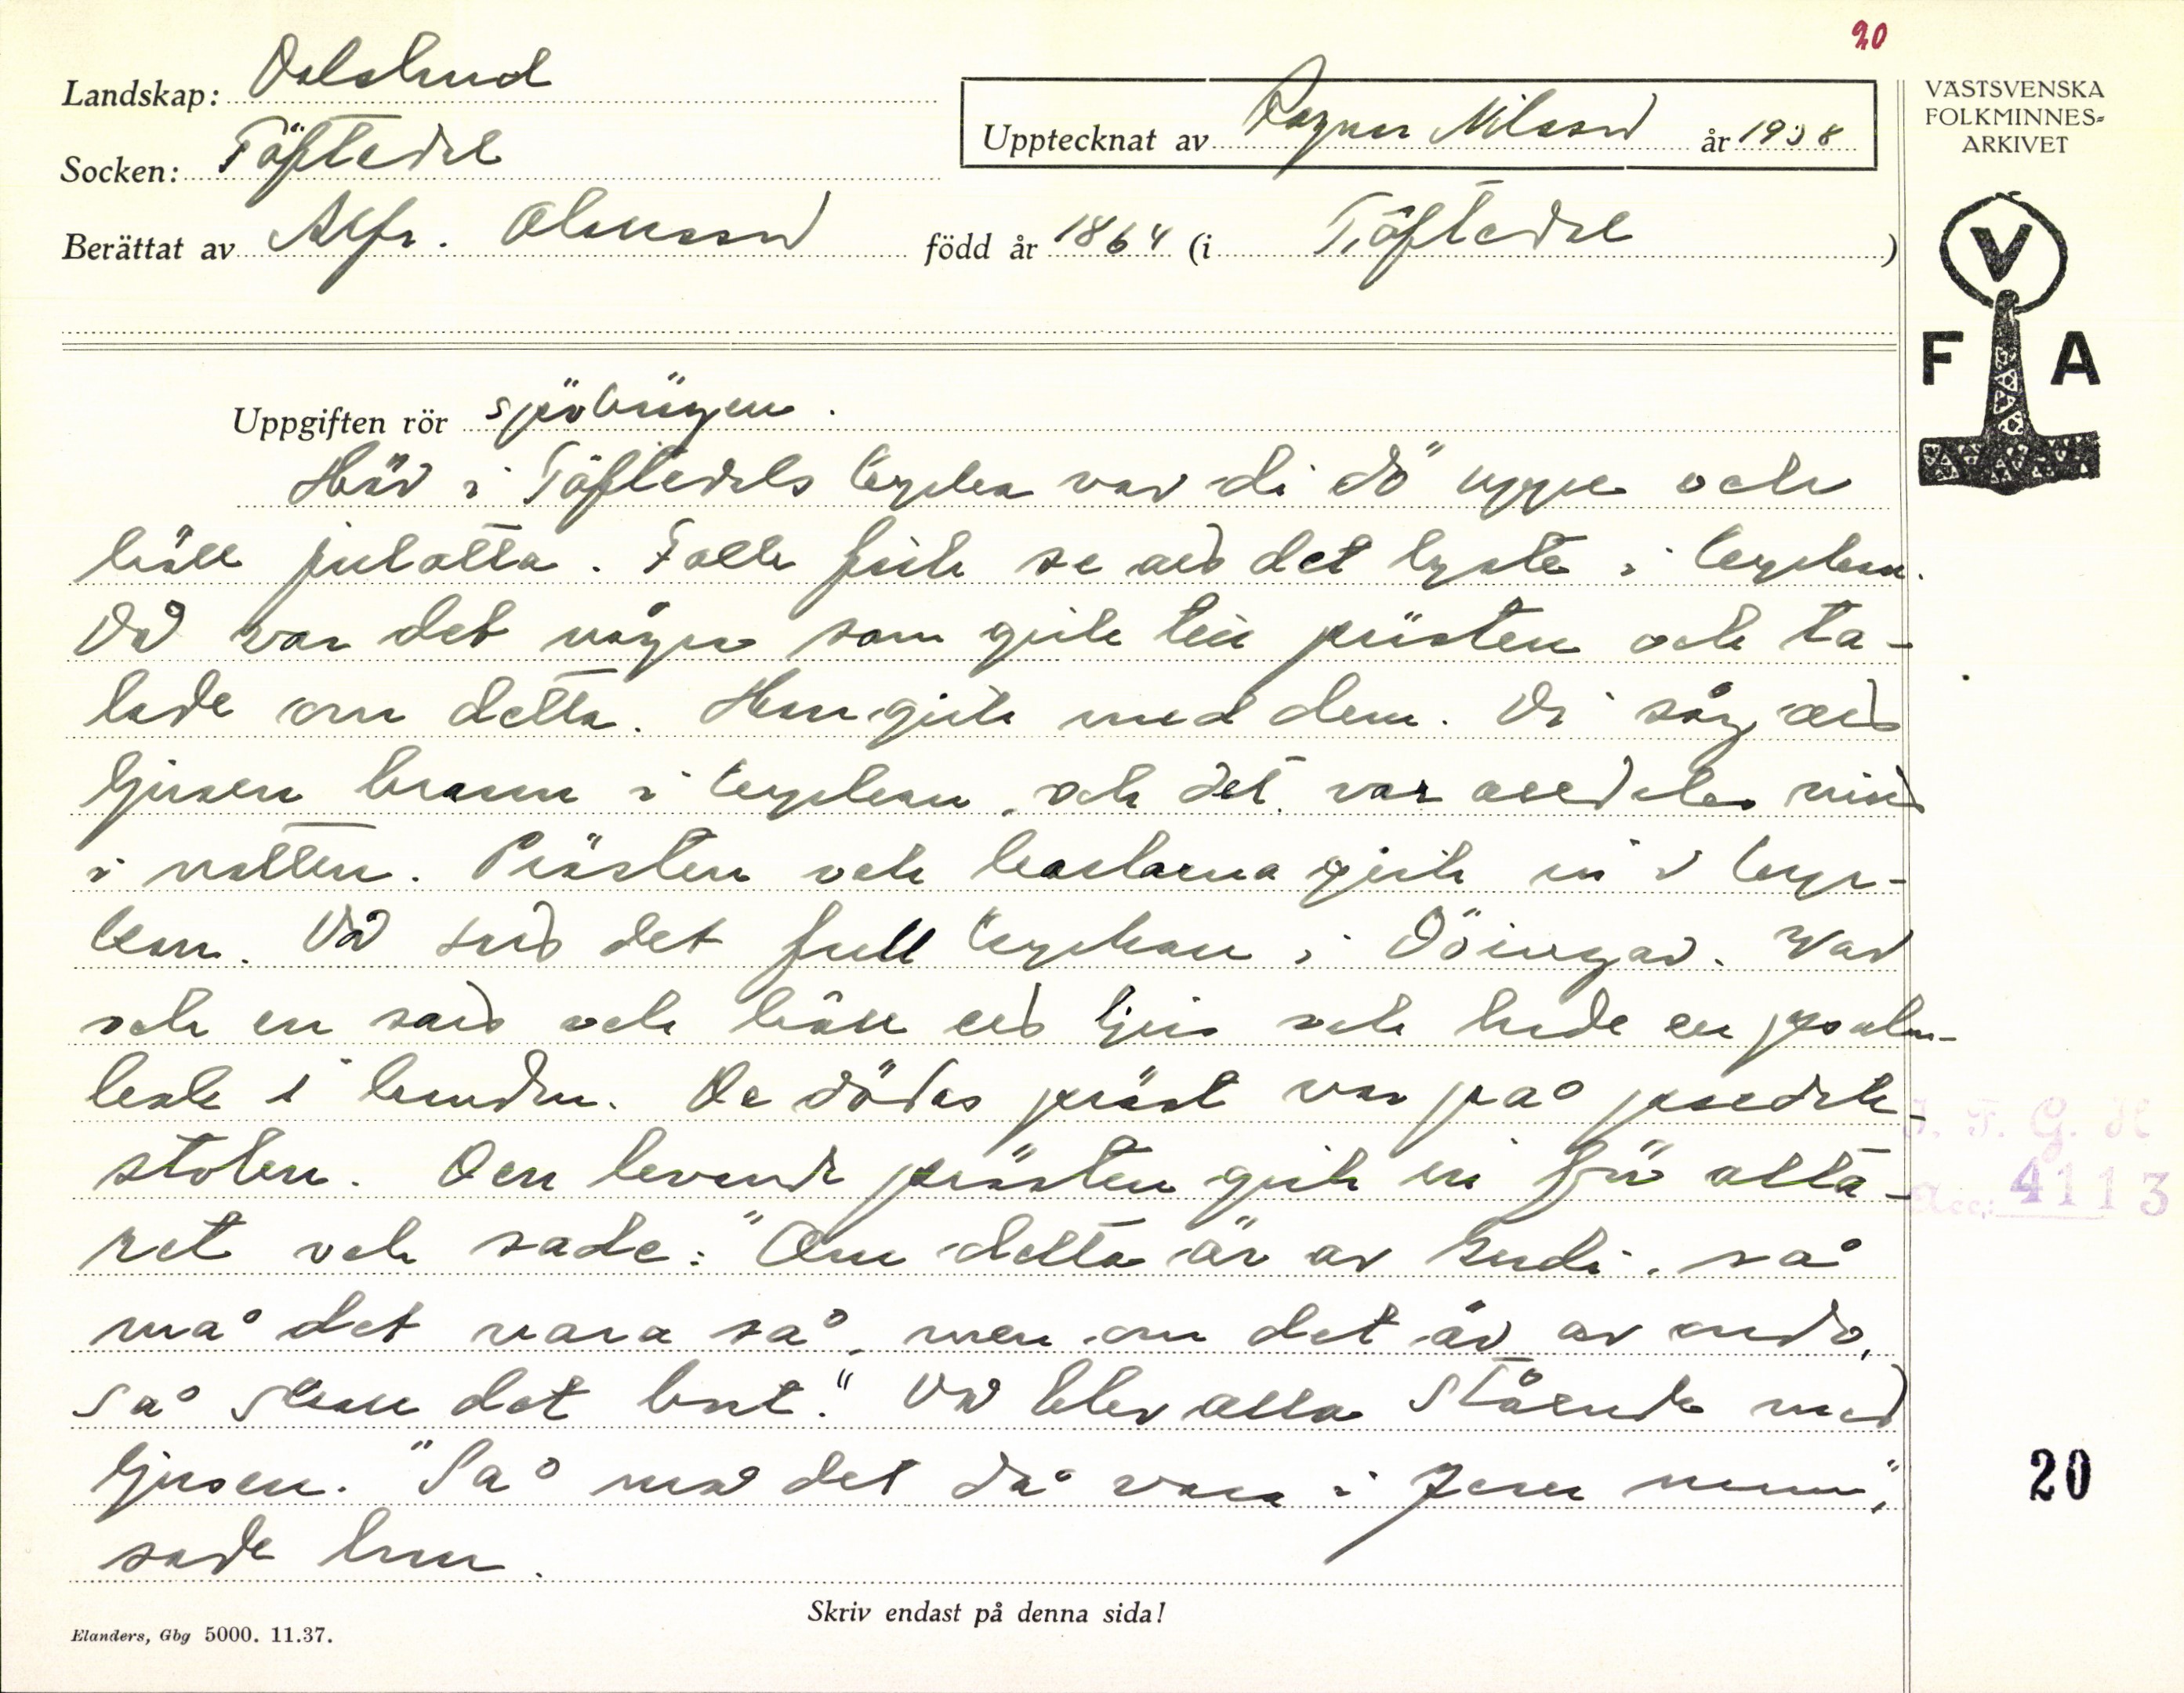 20
Landskap: Dalsland
Upptecknat av Ragnar Nilsson år 1938
VÄSTSVENSKA
FOLKMINNES-
ARKIVET
Socken: Töftedal
Berättat av Alfr. Olausson född år 1864 (i Töftedal)
V
F A
Uppgiften rör
Här i Töftedals kyrka var di dö uppe och
höll julotta. Folk fick se att det lyste i kyrkan.
Då var det någer som gick till prästen och ta-
lade om detta. Han gick med dem. Di såg att
ljusen brann i kyrkan, och det var alldeles mitt
i natten. Prästen och karlarna gick in i kyr-
kan. Då satt det full kyrkan i döingar. Var
och en satt och höll ett ljus och hade en psalm-
bok i handen. De dödas präst var på predik-
stolen. Den levande prästen gick in för alta-
ret och sade: "Om detta är av Gudi, så
må det vara så, men om det är av ondo,
så skall det bort." Då blev alla stående med
ljusen. "Så må det då vara i Jesu namn",
sade han.
I. F. G. H
Acc: 4113
20
Skriv endast på denna sida!
Elanders, Gbg 5000. 11.37.